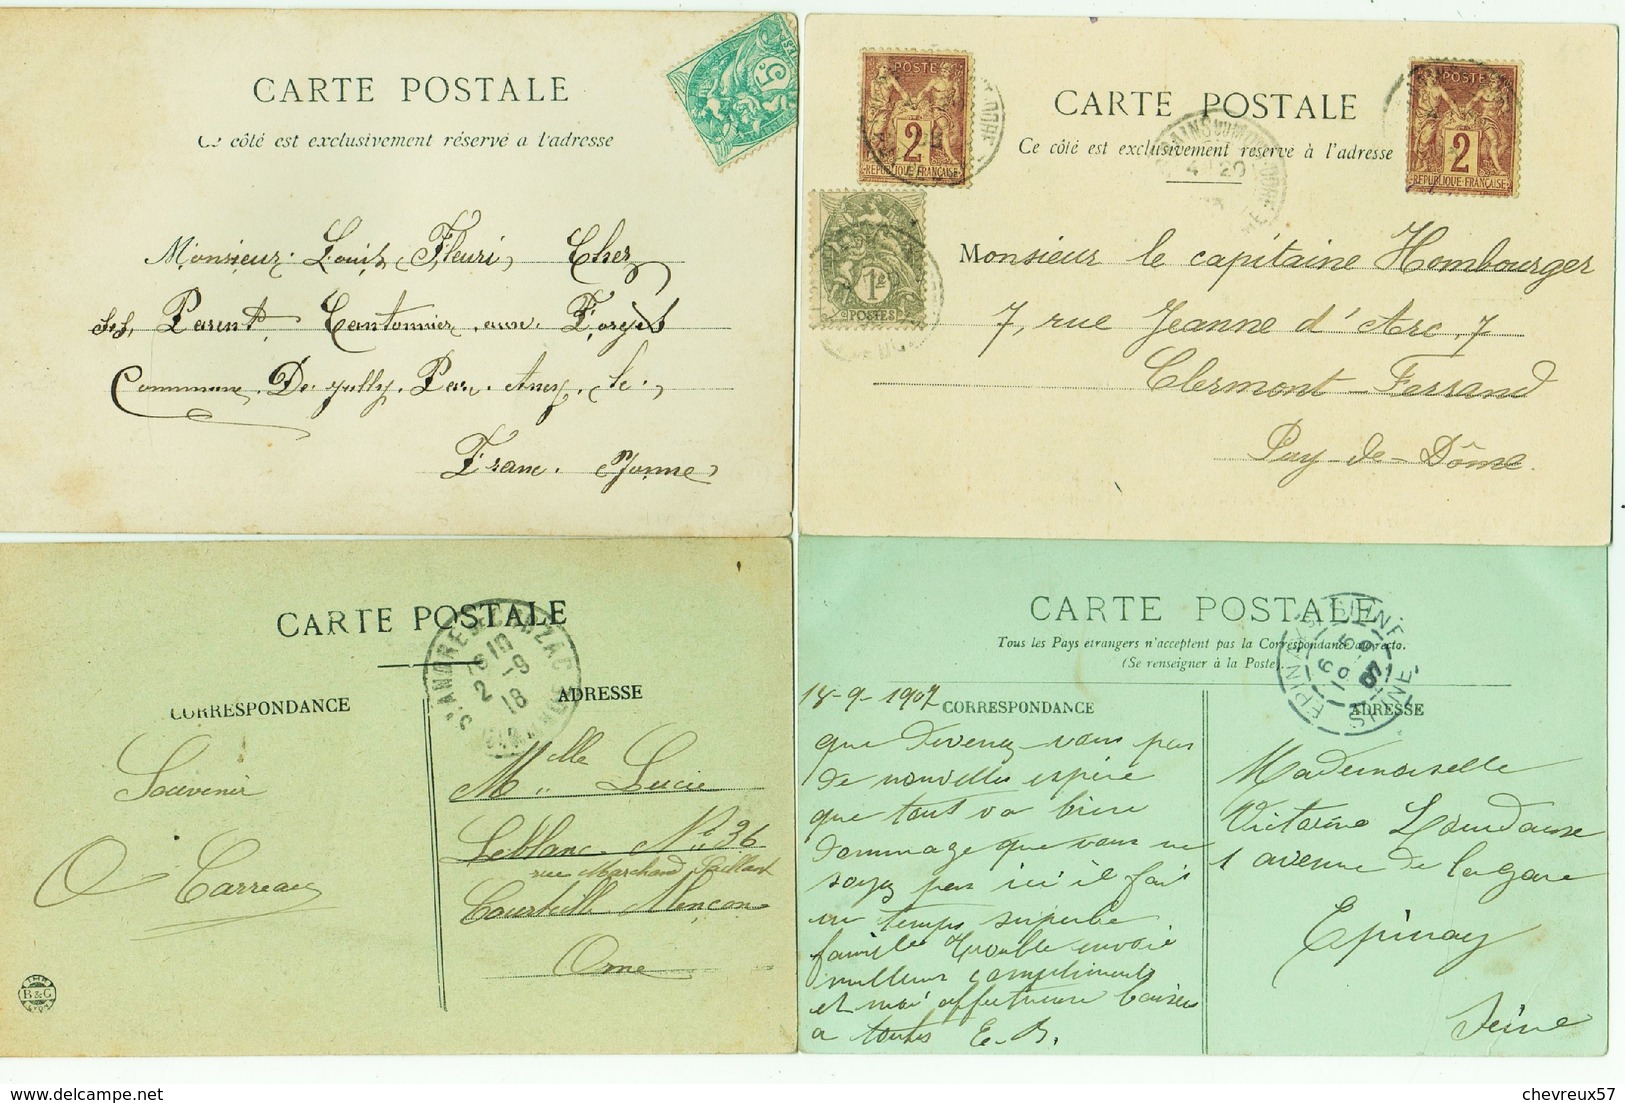 CARTE POSTALE
Ce côté est exclusivement réservé a l'adresse
5
Monsieur Louis Fleuri Chez
ses Parent Cantonnier aux Forges
Commune De Jully Par Ancy le
Franc. Yonne
CARTE POSTALE
Ce côté est exclusivement réservé à l'adresse
POSTE
2
REPUBLIQUE FRANÇAISE
POSTE
2
REPUBLIQUE FRANÇAISE
1c
POSTES
4 20
Monsieur le capitaine Hombourger
7, rue Jeanne d'Arc, 7
Clermont-Ferrand
Puy-de-Dôme
CARTE POSTALE
CORRESPONDANCE
ADRESSE
2 -9
18
Souvenir
O Carreau
Melle Lucie
Leblanc No 36
rue Marchand Saillant
Courteille Alençon
Orne
B & G
CARTE POSTALE
Tous les Pays étrangers n'acceptent pas la Correspondance au recto.
(Se renseigner à la Poste).
18-9-1907
CORRESPONDANCE
ADRESSE
EPINAY S SEINE
SEINE
que devenez-vous pas
de nouvelles espère
que tout va bien
dommage que vous ne
soyez pas ici il fait
un temps superbe
famille Trouble envoie
meilleurs compliments
et moi affectueux baisers
a toutes E. B.
Mademoiselle
Victorine
1 avenue de la gare
Epinay
Seine
chevreux57